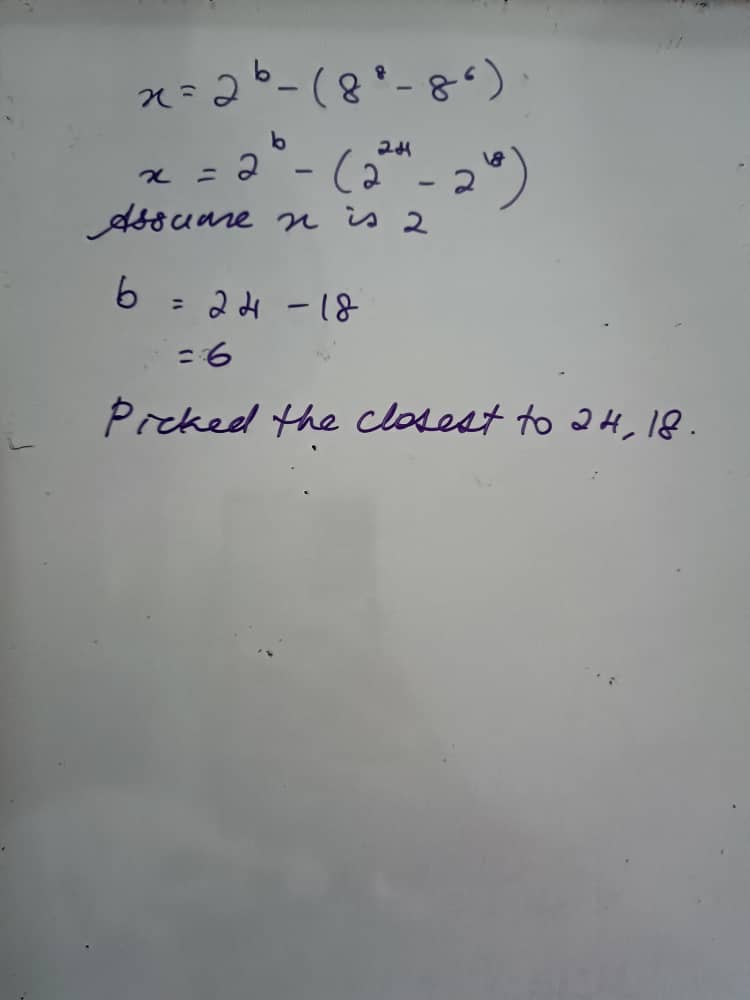 x = 2^b - (8^8 - 8^6)
x = 2^b - (2^24 - 2^18)
Assume x is 2
b = 24 - 18
= 6
Picked the closest to 24, 18.